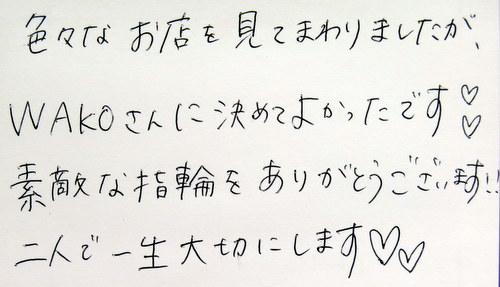 色々な お店を 見てまわりましたが、
WAKOさんに 決めてよかったです♡♡
素敵な指輪を ありがとうございます!!
二人で 一生 大切にします♡♡